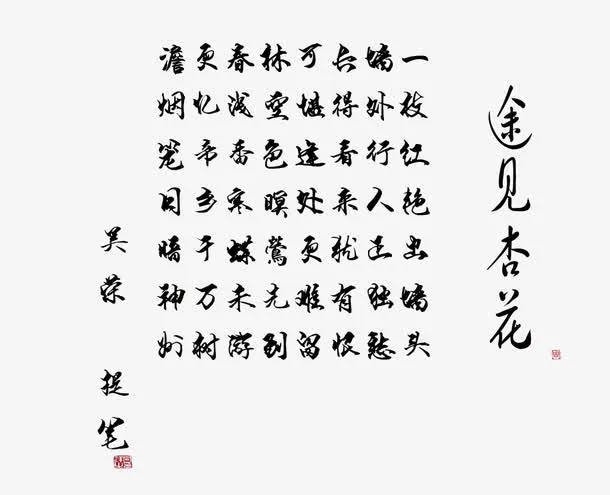 途见杏花
一枝红艳出墙头
墙外行人正独愁
长得看来犹有恨
可堪逢处更难留
林空色暝莺先到
春浅香寒蝶未游
更忆帝乡千万树
澹烟笼日暗神州
吴荣 捉笔